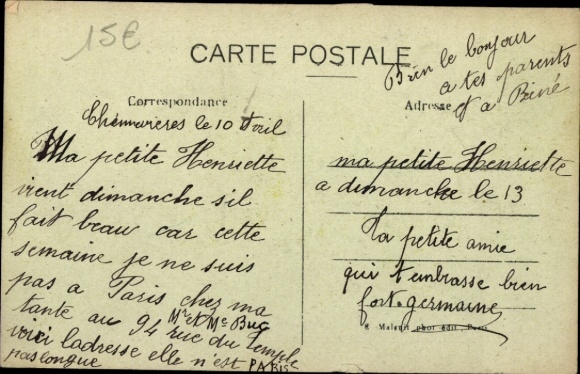 15€
CARTE POSTALE
Bien le bonjour
a tes parents
et a Réné
Correspondance
Adresse
Chennevieres le 10 Avril
Ma petite Henriette
vient dimanche s'il
fait beau car cette
semaine je ne suis
pas a Paris chez ma
tante au 94 rue du Temple
Mr & Me Buc
voici ladresse elle n'est
pas longue PARIS
ma petite Henriette
a dimanche le 13
Ta petite amie
qui t'embrasse bien
fort. germaine
phot. edit. Paris